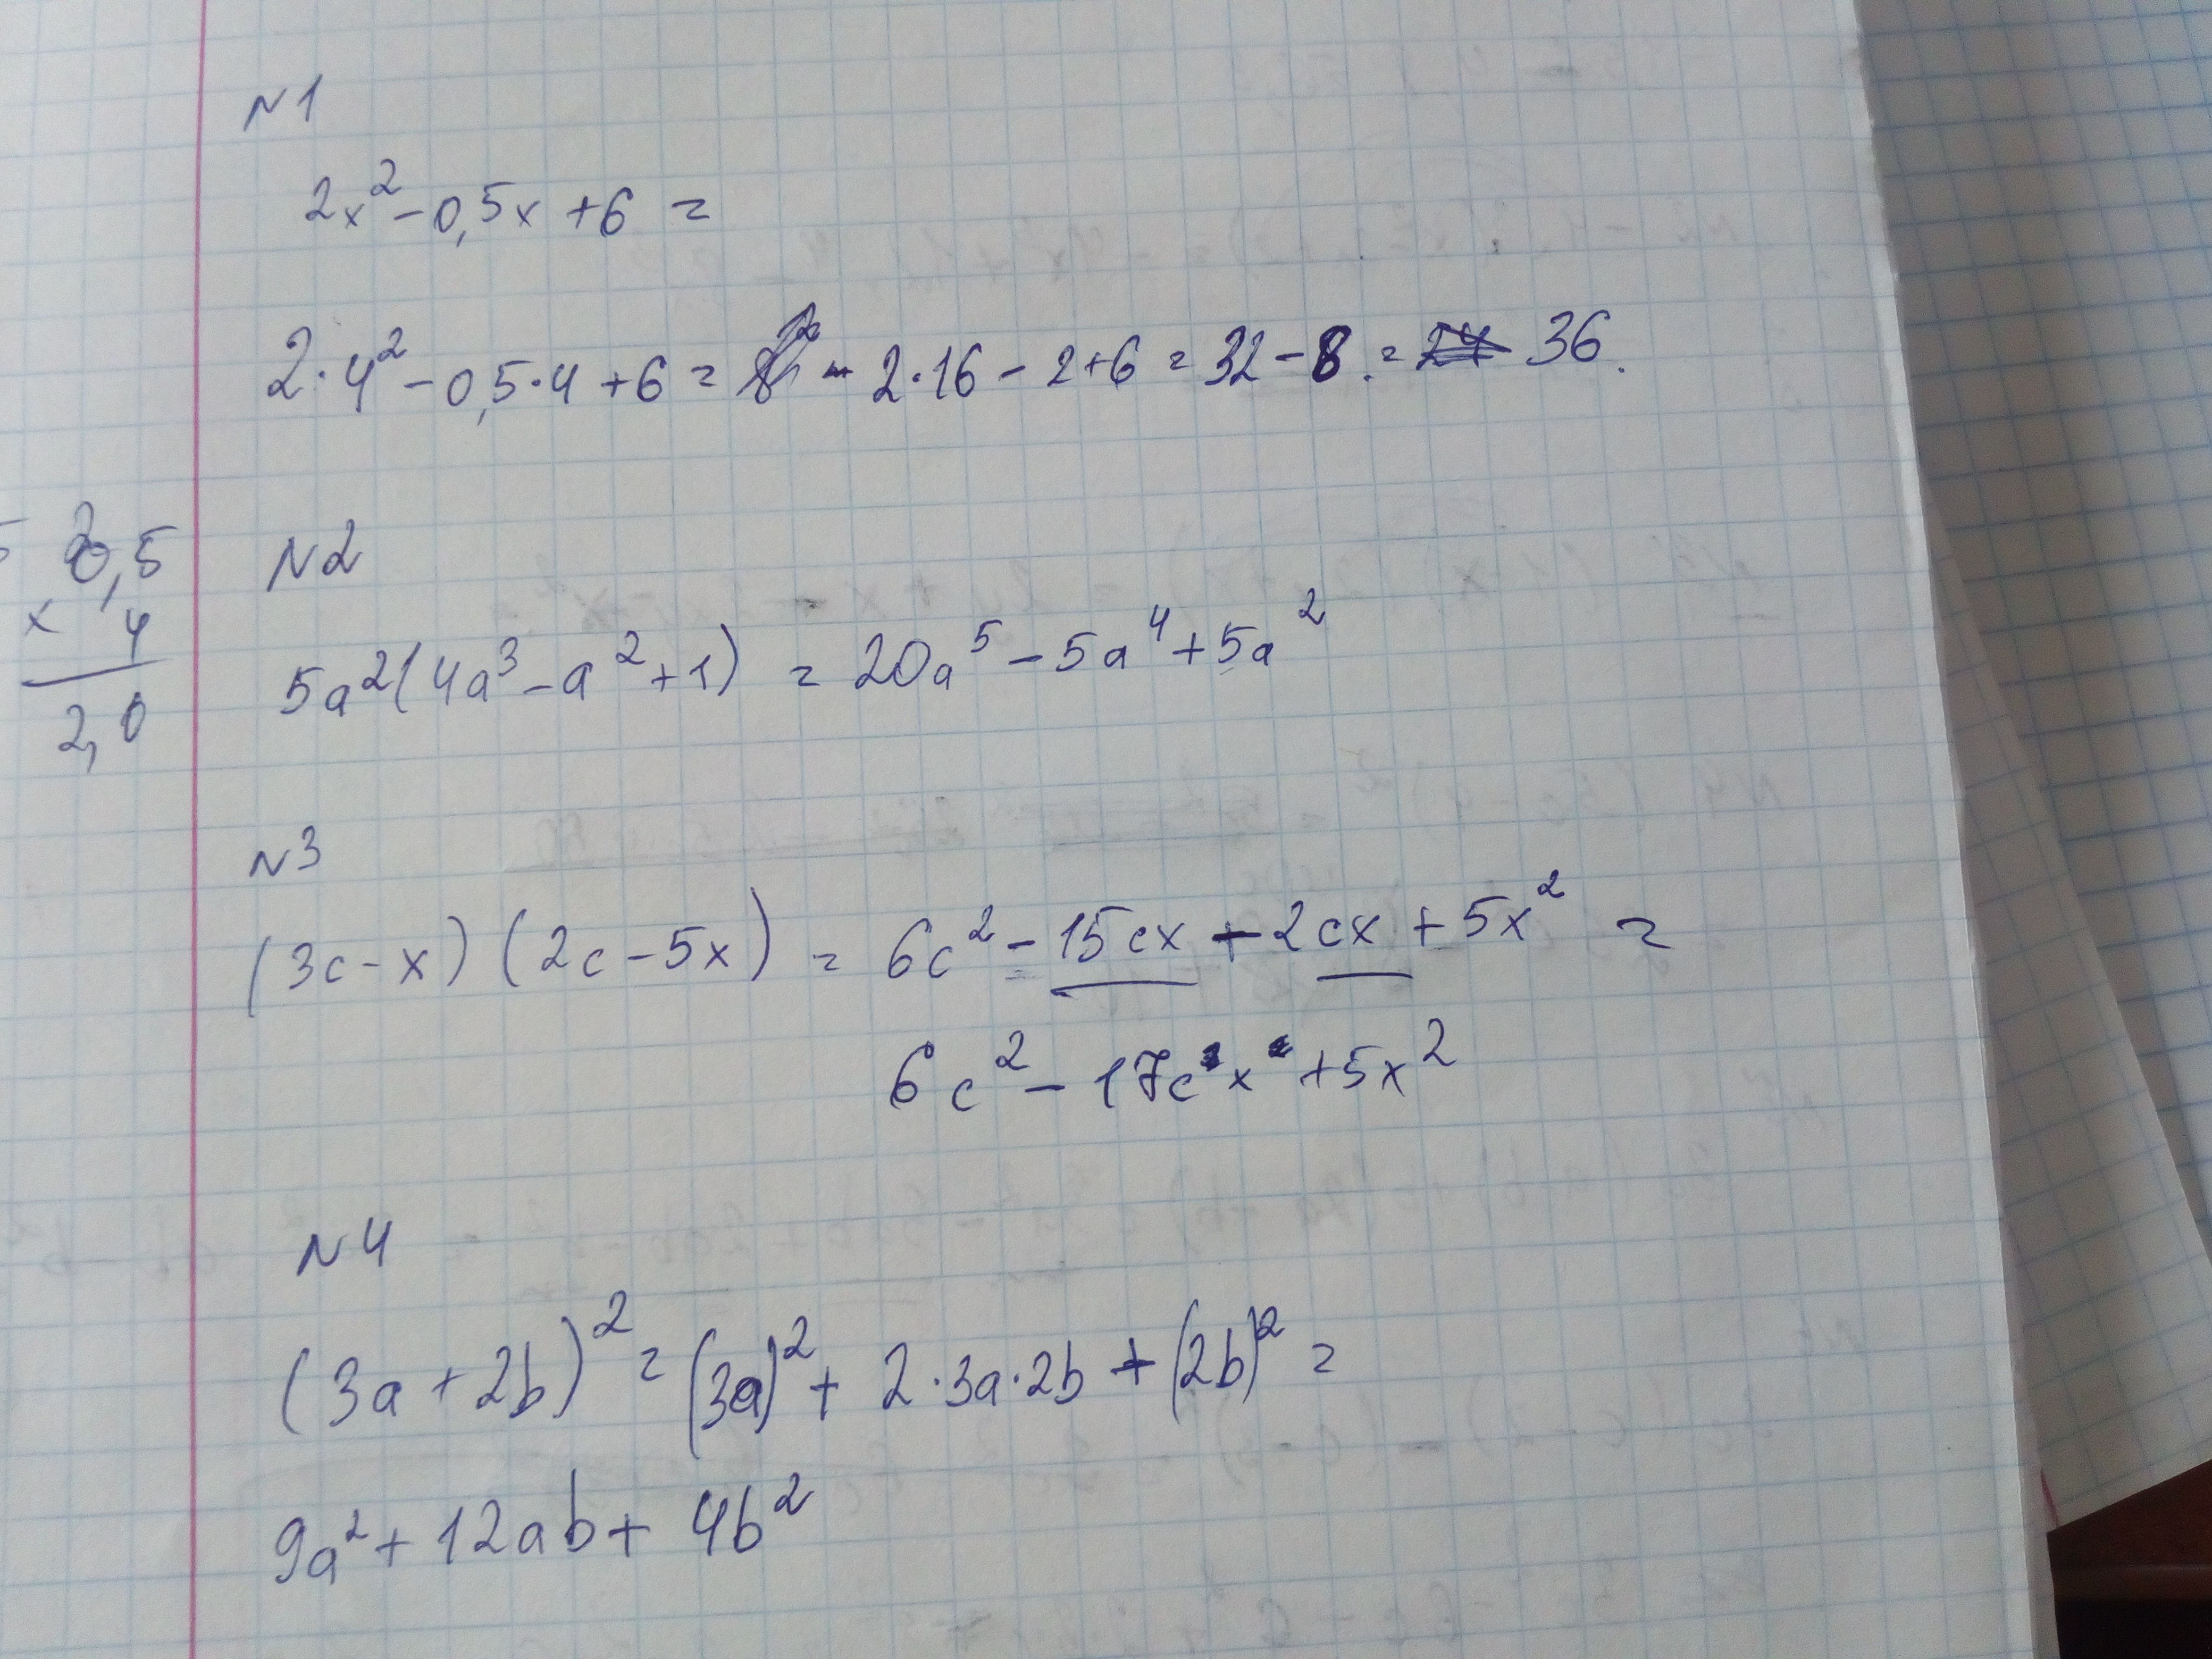 N1
2x²-0,5x+6=
2·4²-0,5·4+6= - 2·16-2+6=32-8.= 36.
0,5
x 4
2,0
N2
5a²(4a³-a²+1)=20a⁵-5a⁴+5a²
N3
(3c-x)(2c-5x)=6c²-15cx-2cx+5x²=
6c²-17cx+5x²
N4
(3a+2b)²=(3a)²+2·3a·2b+(2b)²=
9a²+12ab+4b²